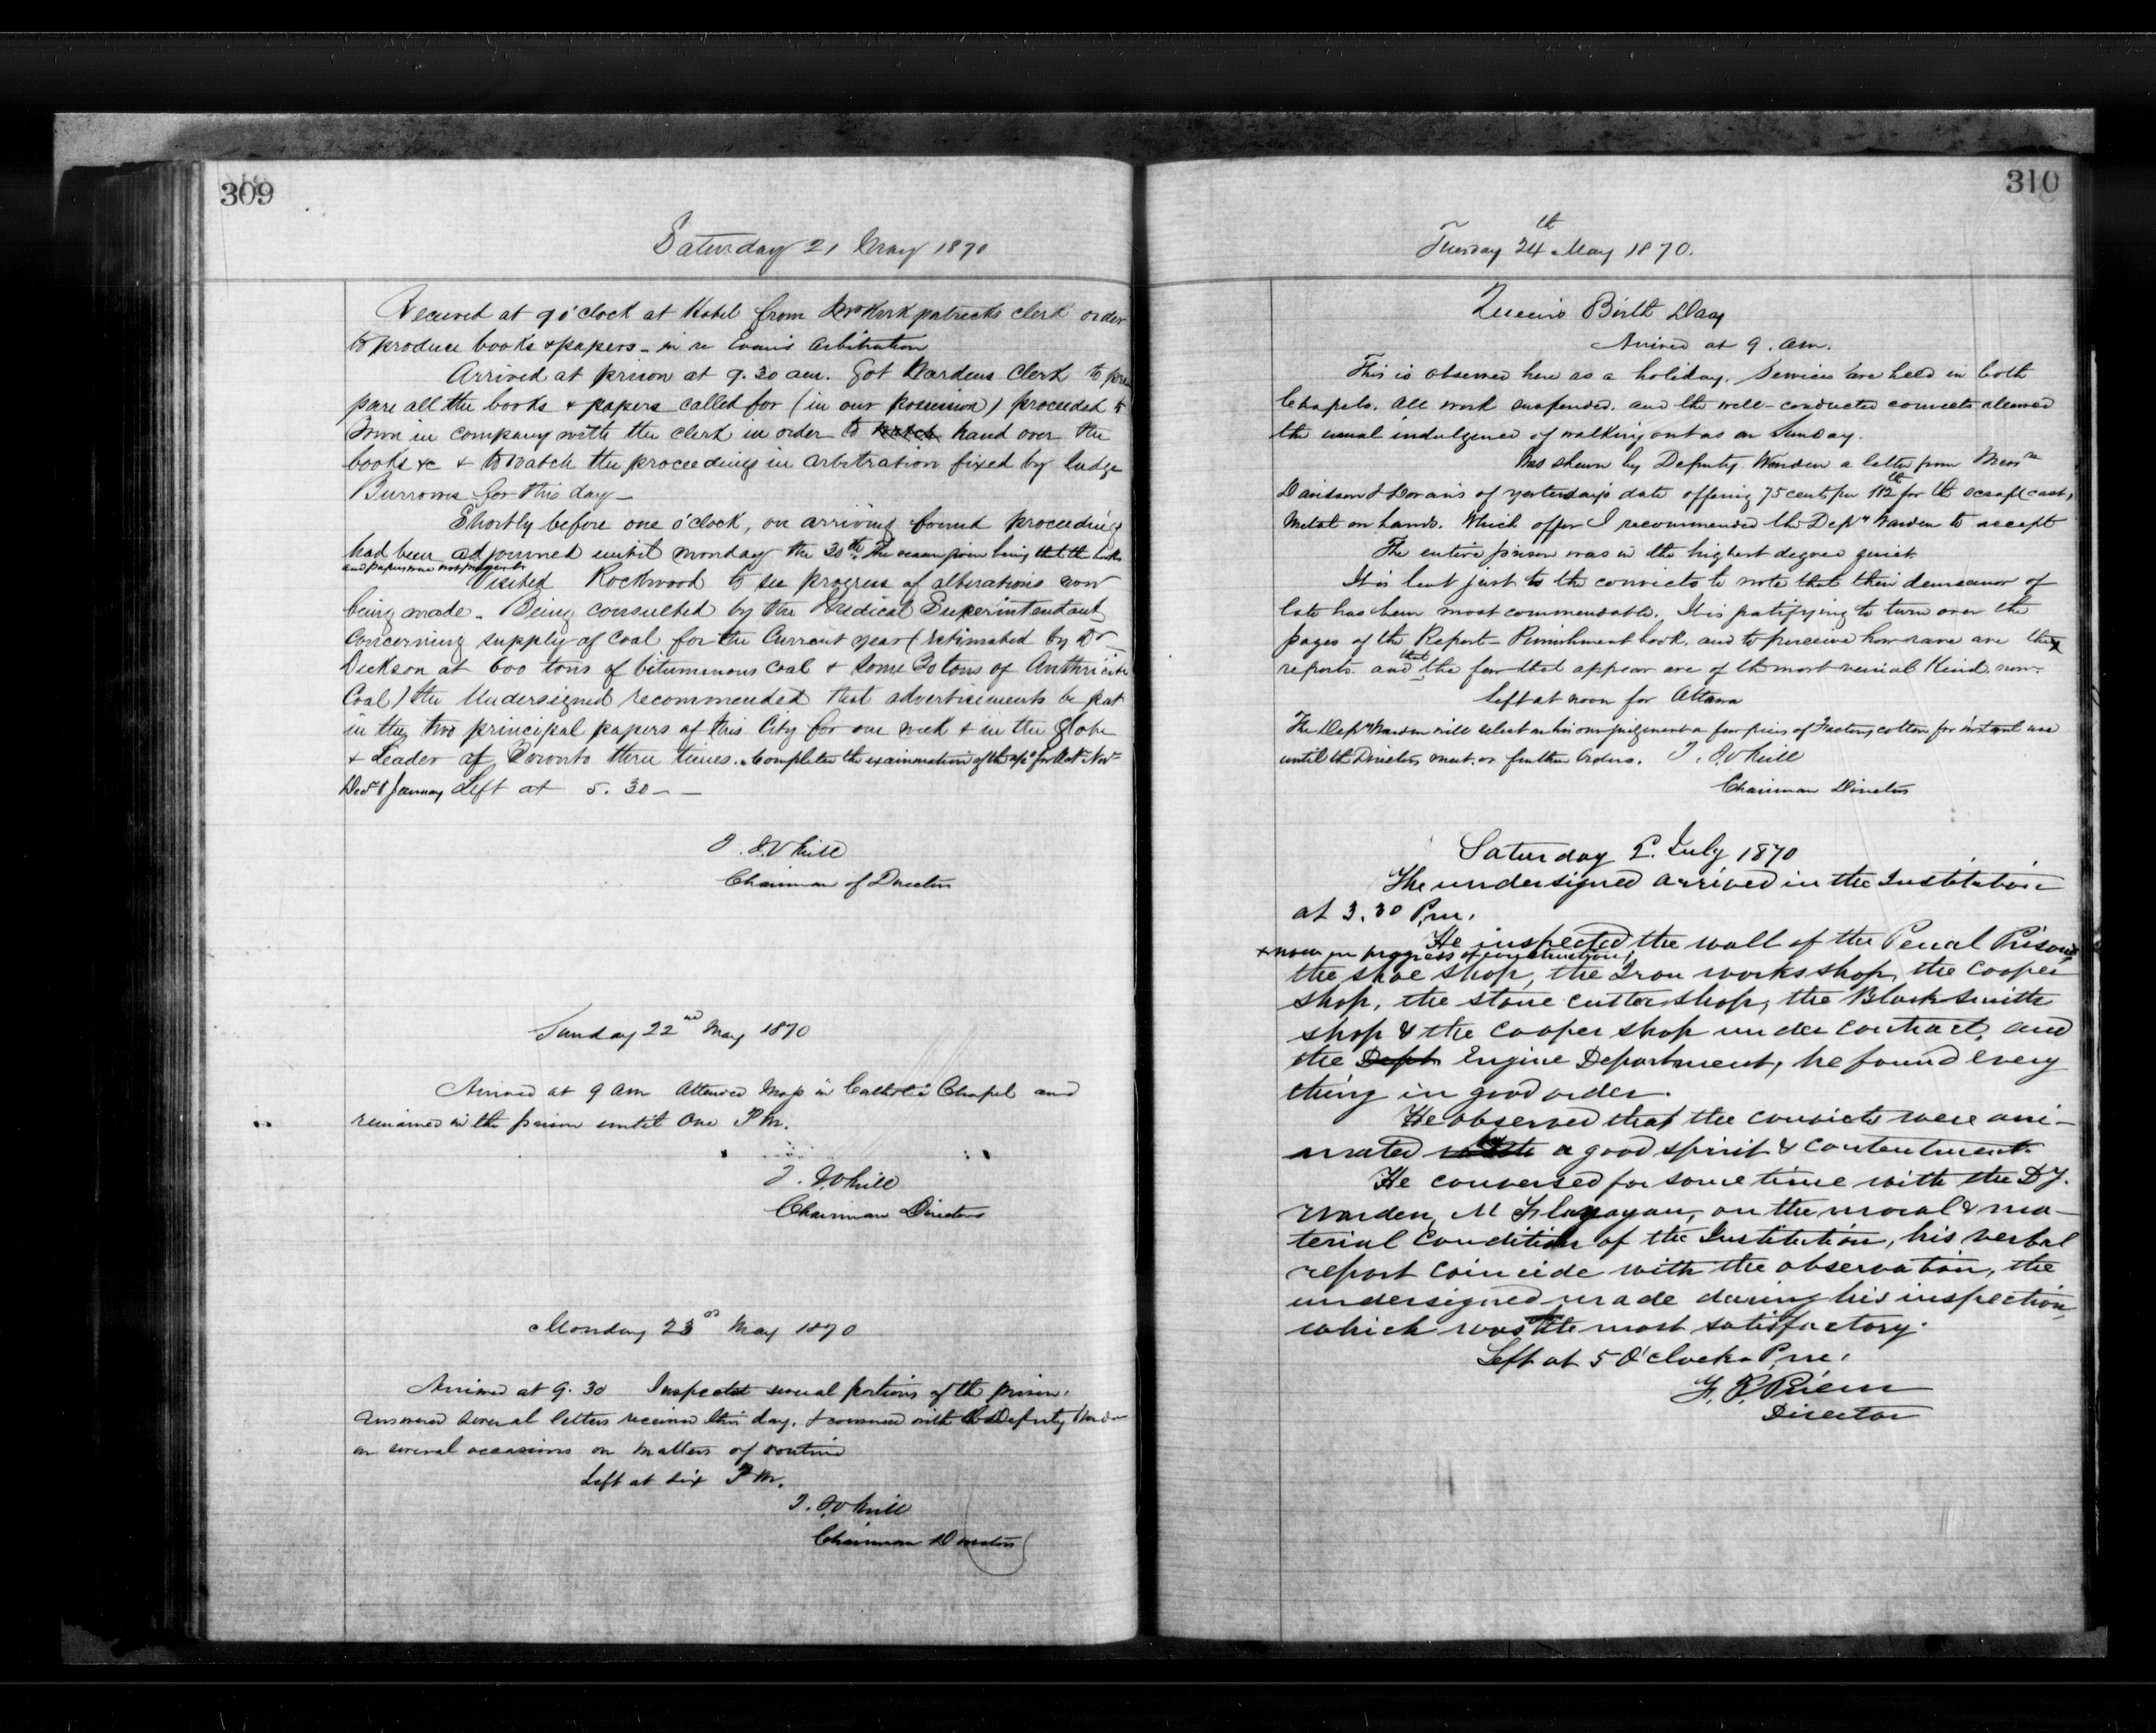 309
Saturday 21 May 1870
Received at 9 o'clock at Hotel from Kirkpatricks clerk order
to produce books & papers - in re Evans arbitration
Arrived at prison at 9.30 am. Got Wardens Clerk to pre
pare all the books & papers called for (in our possession) proceeded to
Town in company with the clerk in order to watch hand over the
books &c & to watch the proceedings in arbitration fixed by Judge
Burrows for this day -
Shortly before one o'clock, on arriving found proceedings
had been adjourned until monday the 30th. The reason given being that the books
and papers were not
Visited Rockwood to see progress of alterations now
being made. Being consulted by the Medical Superintendant
concerning supply of coal for the Current year (estimated by Dr
Dickson at 600 tons of bituminous coal & some 30 tons of Anthricite
Coal) the Undersigned recommended that advertisements be put
in the two principal papers of this City for one week & in the Globe
& Leader of Toronto three times. Completed the examination of the a/cs for Oct Novr
Decr & January Left at 5.30 - -
J. White
Chairman of Directors
Sunday 22nd May 1870
Arrived at 9 am Attended Mass in Catholic Chapel and
remained in the prison until One P.M.
Chairman Directors
Monday 23d May 1870
Arrived at 9.30 Inspected several portions of the prison.
answered several letters received this day, & conversed with the Deputy Warden
on several occasions on matters of routine
Left at six P.M.
Chairman Directors
310
Tuesday 24th May 1870.
Queen's Birth Day
Arrived at 9. am.
This is observed here as a holiday. Services are held in both
Chapels. All work suspended. and the well-conducted convicts allowed
the usual indulgence of walking out as on Sunday.
Was shewn by Deputy Warden a letter from Messrs
Davidson & Doran's of yesterday's date offering 75 cents per 112 lb for the scrap (cast)
metal on hand. Which offer I recommended the Depy Warden to accept
The entire prison was in the highest degree quiet
It is but just to the convicts to note that their demeanor of
late has been most commendable. It is gratifying to turn over the
pages of the Report Punishment book. and to perceive how rare are the
reports. and that the few that appear are of the most venial Kind now.
Left at noon for Ottawa
The Depy Warden will select on his own judgment a few pieces of Factory cotton for instant use
until the Directors meet. or further Orders.
Chairman Directors
Saturday 2. July 1870
The undersigned arrived in the Institution
at 3.30 P.m.
He inspected the wall of the Penal Prison x
x now in progress of construction,
the shoe shop, the Iron works shop, the cooper
shop, the stone cutter shop, the Blacksmith
shop & the cooper shop under contract, and
the Dept Engine Department, he found every
thing in good order.
He observed that the convicts were ani-
mated with by a good spirit & contentment.
He conversed for some time with the Dy.
Warden, M Flanagan, on the moral & ma-
terial condition of the Institution, his verbal
report coincide with the observation, the
undersigned made during his inspection
which was the most satisfactory.
Left at 5 O'clock P.m.
Director